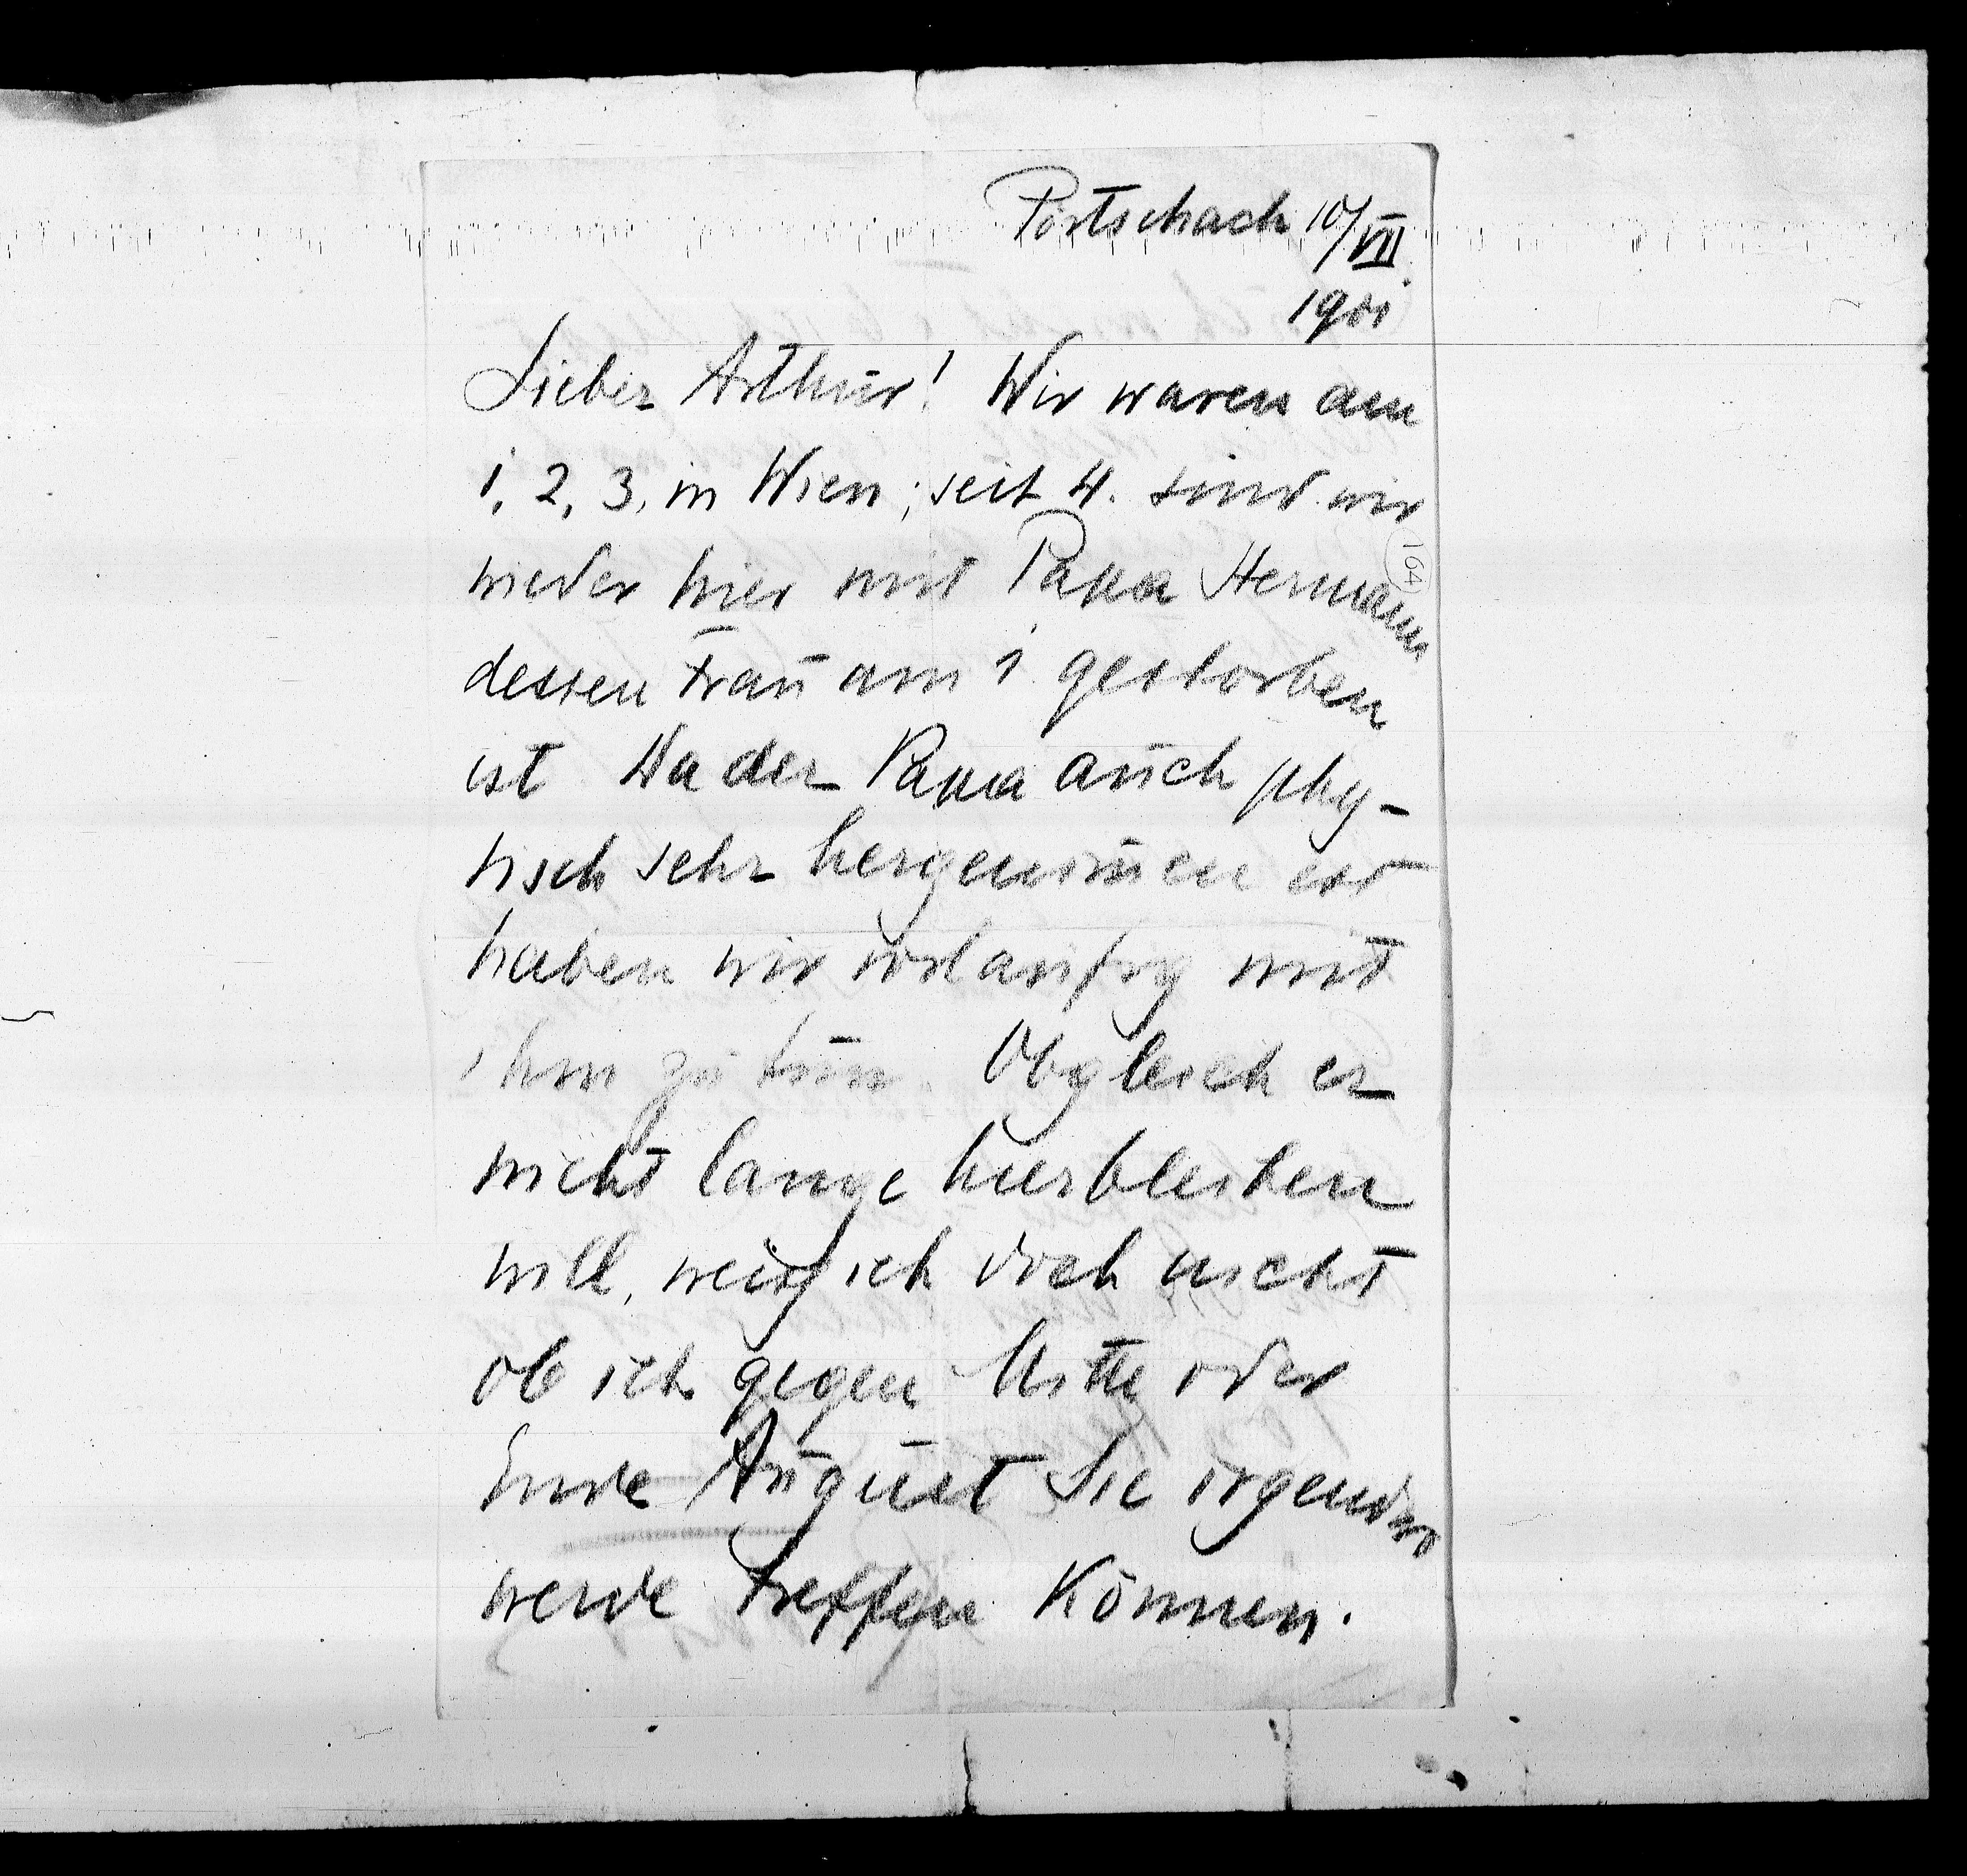 Pörtschach 10/VII.
1901
Lieber Arthur! Wir waren am
1, 2, 3, in Wien; seit 4. sind wir
wieder hier mit Papa Hermann
164
dessen Frau am 1 gestorben
ist Da der Papa auch phy-
sisch sehr hergenom̄en ist
haben wir vorlaufig mit
ihm zu tun. Obgleich er
nicht lange hierbleiben
will, weiß ich doch nicht
ob ich gegen Mitte oder
Ende August Sie irgendwo
werde treffen können.